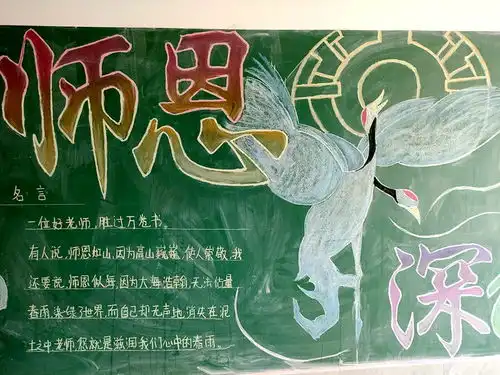 师恩
深
名言
一位好老师，胜过万卷书。
有人说，师恩如山，因为高山巍巍，使人崇敬。我
还要说，师恩似海，因为大海浩瀚，无法估量
春雨，染绿了世界，而自己却无声地消失在泥
土之中老师您就是滋润我们心中的春雨。